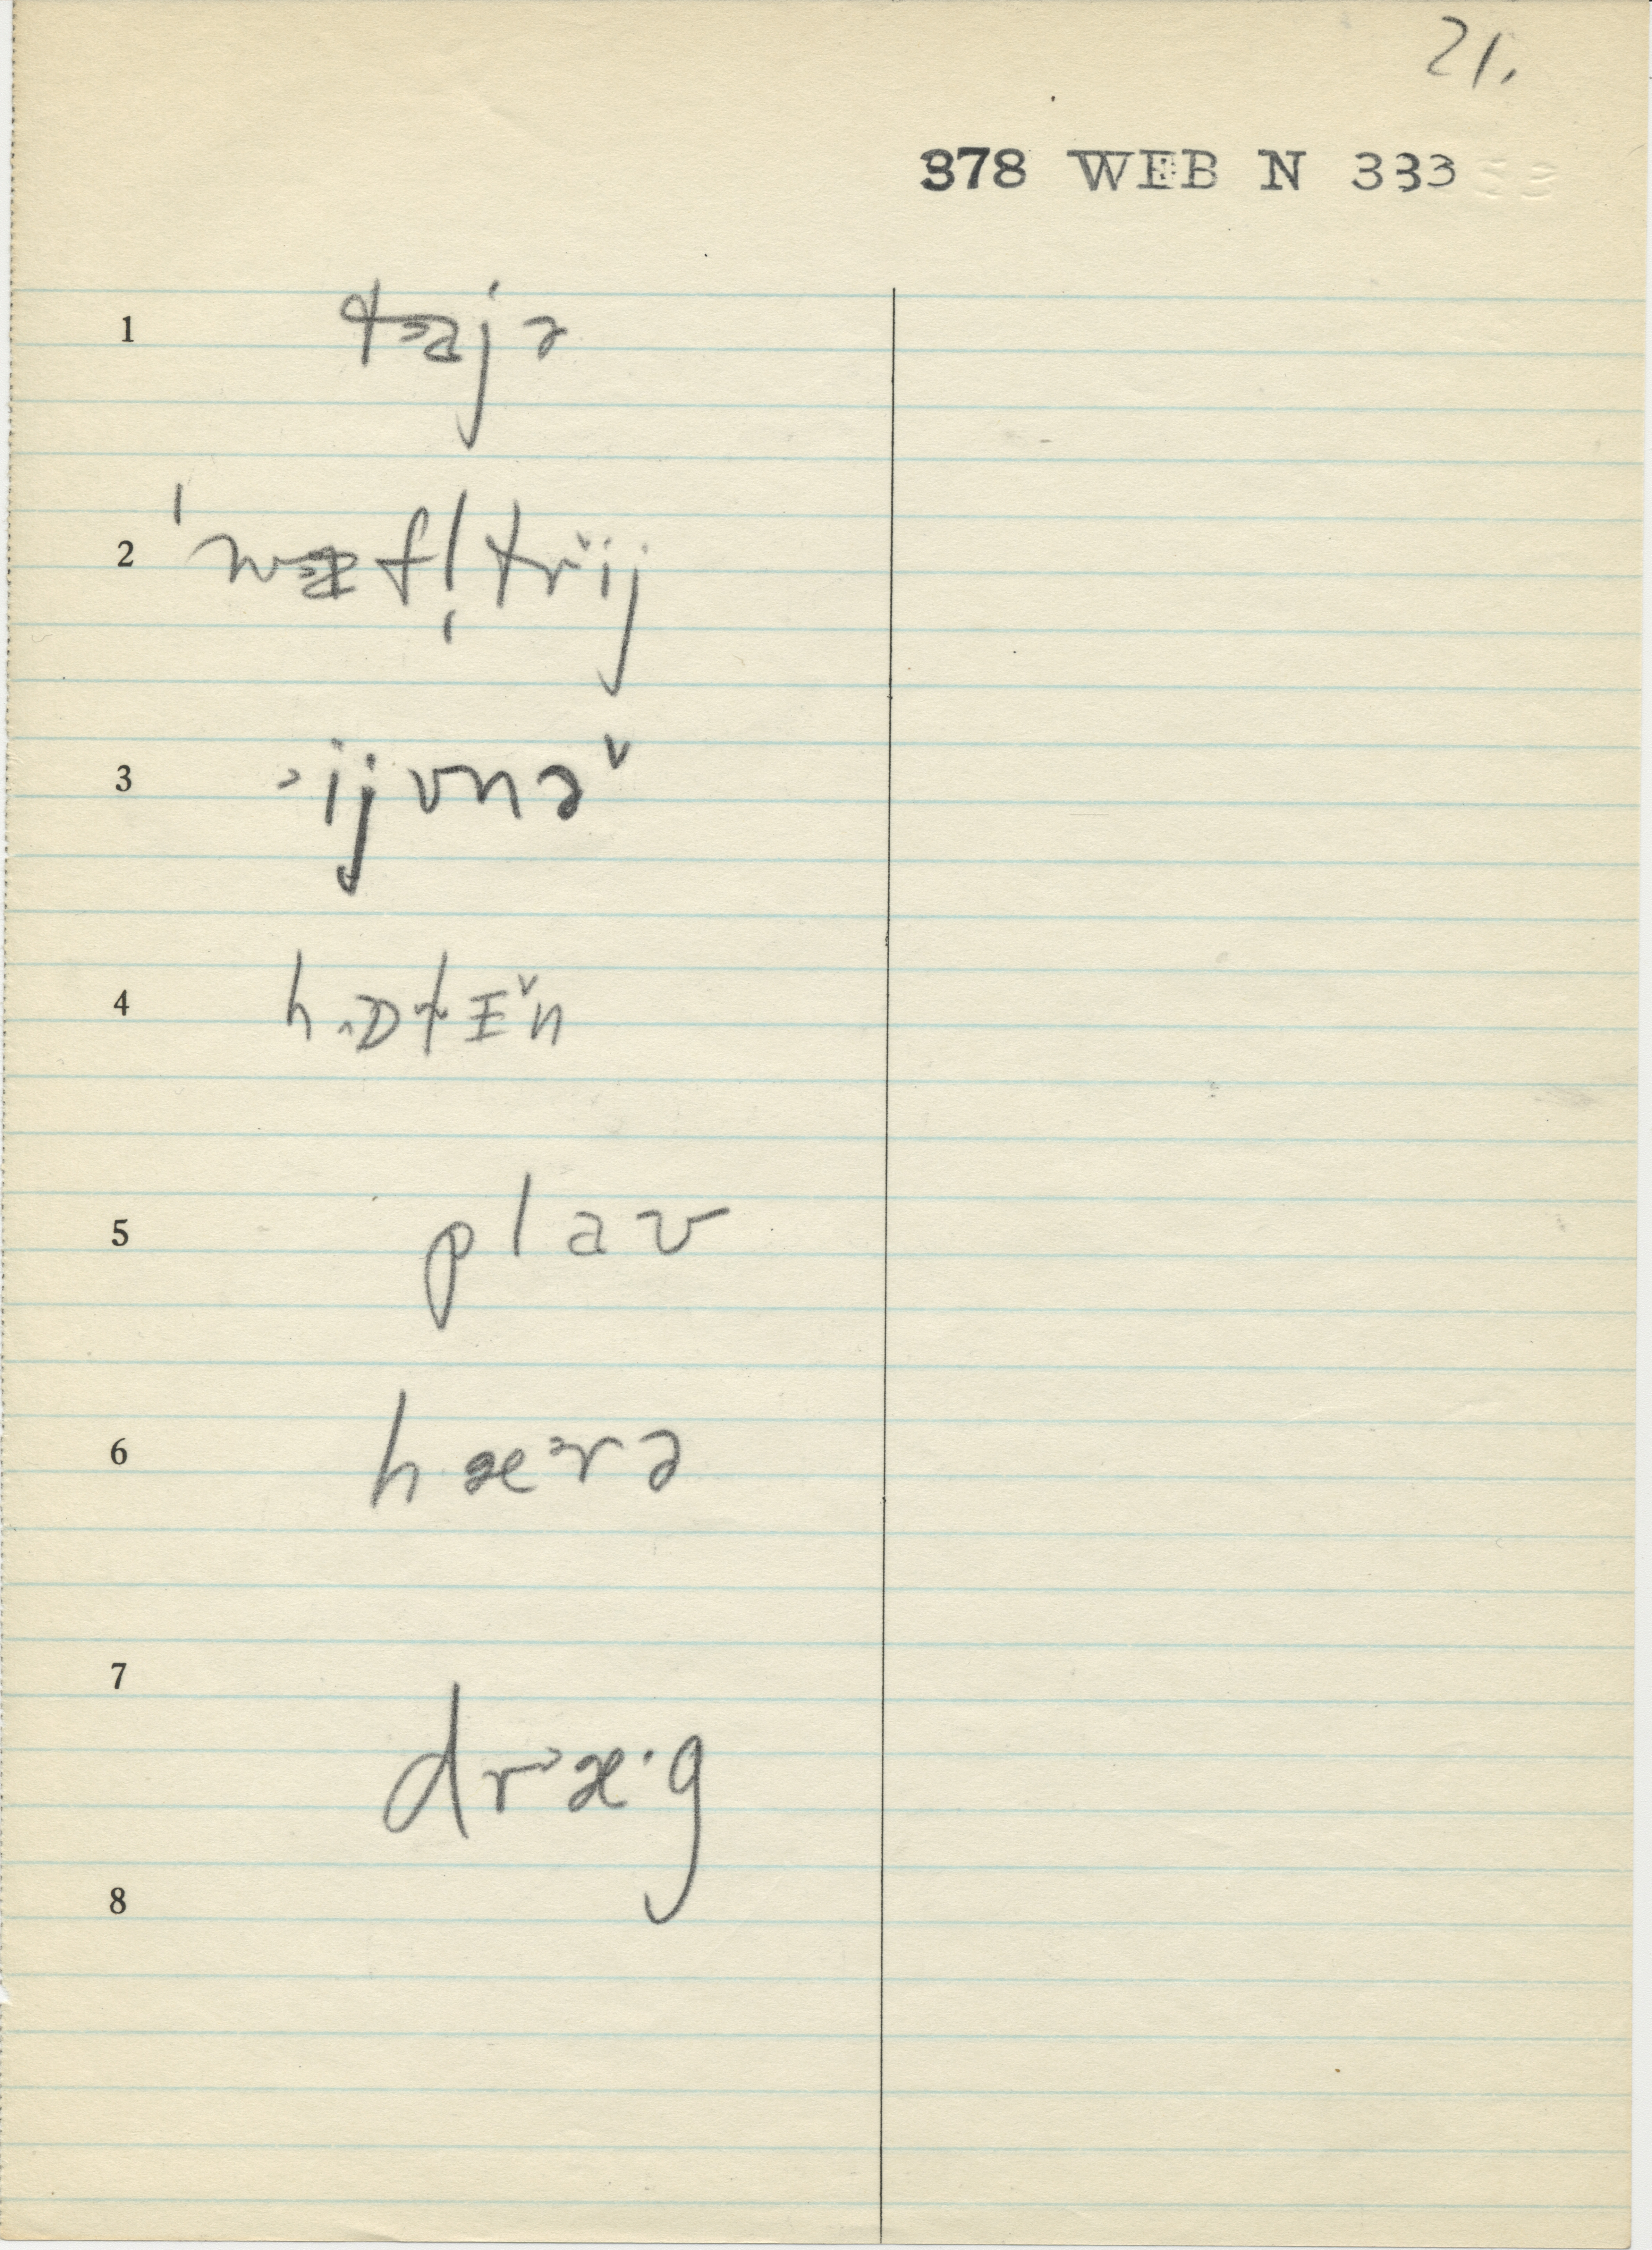 21.
378 WEB N 333
1 tajə
2 'wæfl̩trij
3 ˃ijvnə˅
4 h˄ɒtɪ˅n
5 plav
6 hæ˃rə
7 dr˃æ·g
8